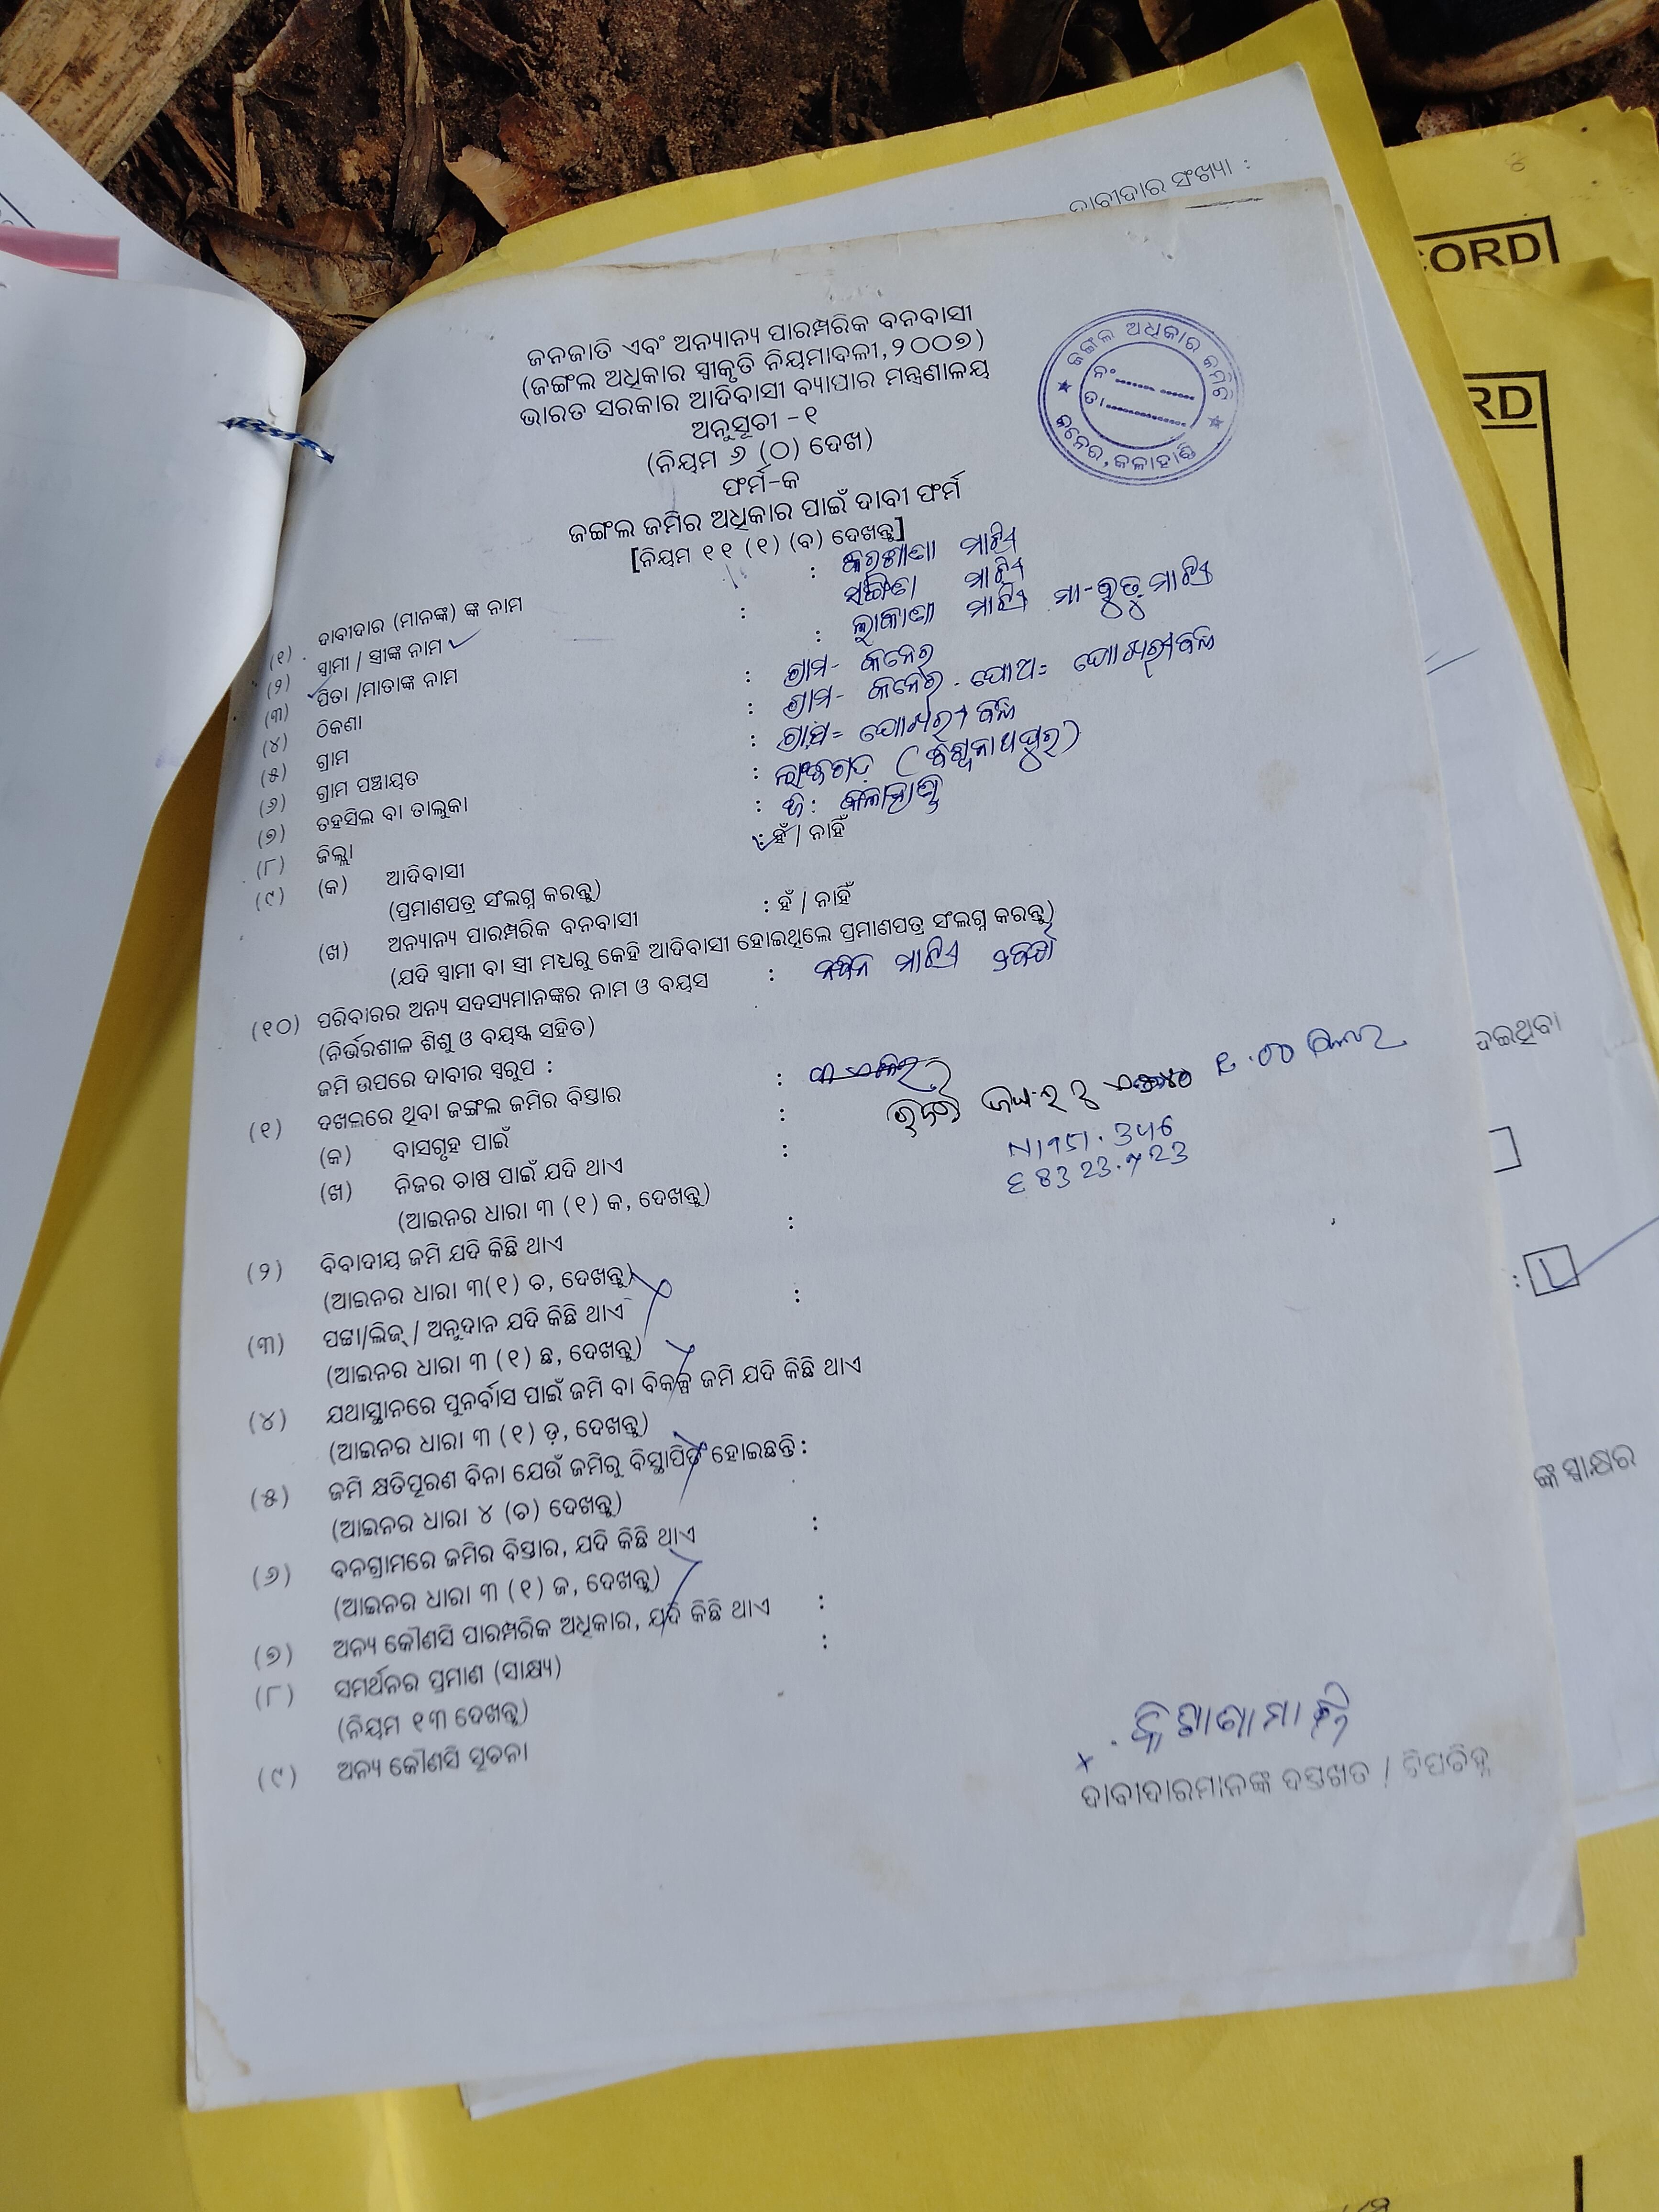 ଦାବୀଦାର ସଂଖ୍ୟା :
CORD
RD
ଜନଜାତି ଏବଂ ଅନ୍ୟାନ୍ୟ ପାରମ୍ପରିକ ବନବାସୀ
(ଜଙ୍ଗଲ ଅଧିକାର ସ୍ୱୀକୃତି ନିୟମାବଳୀ,୨୦୦୭)
ଭାରତ ସରକାର ଆଦିବାସୀ ବ୍ୟାପାର ମନ୍ତ୍ରଣାଳୟ
ଅନୁସୂଚୀ -୧
(ନିୟମ ୬ (ଠ) ଦେଖ)
ଫର୍ମ-କ
ଜଙ୍ଗଲ ଜମିର ଅଧିକାର ପାଇଁ ଦାବୀ ଫର୍ମ
[ନିୟମ ୧୧ (୧) (ବ) ଦେଖନ୍ତୁ]
ଜଙ୍ଗଲ ଅଧିକାର କମିଟି
ନଂ
ତା
କନେର, କଳାହାଣ୍ଡି
(୧) ଦାବୀଦାର (ମାନଙ୍କ) ଙ୍କ ନାମ : ମାଝି
(୨) ସ୍ୱାମୀ / ସ୍ତ୍ରୀଙ୍କ ନାମ : ମାଝି
(୩) ପିତା /ମାତାଙ୍କ ନାମ : ମାଝି ମା- ମାଝି
(୪) ଠିକଣା : ଗ୍ରାମ- କନେର
(୫) ଗ୍ରାମ : ଗ୍ରାମ- କନେର
(୬) ଗ୍ରାମ ପଞ୍ଚାୟତ :
(୭) ତହସିଲ ବା ତାଲୁକା : ଲାଞ୍ଜିଗଡ଼ (ବିଶ୍ୱନାଥପୁର)
(୮) ଜିଲ୍ଲା : ଜି: କଳାହାଣ୍ଡି
(୯) (କ) ଆଦିବାସୀ : ହଁ / ନାହିଁ
(ପ୍ରମାଣପତ୍ର ସଂଲଗ୍ନ କରନ୍ତୁ)
(ଖ) ଅନ୍ୟାନ୍ୟ ପାରମ୍ପରିକ ବନବାସୀ : ହଁ / ନାହିଁ
(ଯଦି ସ୍ୱାମୀ ବା ସ୍ତ୍ରୀ ମଧ୍ୟରୁ କେହି ଆଦିବାସୀ ହୋଇଥିଲେ ପ୍ରମାଣପତ୍ର ସଂଲଗ୍ନ କରନ୍ତୁ)
(୧୦) ପରିବାରର ଅନ୍ୟ ସଦସ୍ୟମାନଙ୍କର ନାମ ଓ ବୟସ : ମାଝି
(ନିର୍ଭରଶୀଳ ଶିଶୁ ଓ ବୟସ୍କ ସହିତ)
ଜମି ଉପରେ ଦାବୀର ସ୍ୱରୂପ :
(୧) ଦଖଲରେ ଥିବା ଜଙ୍ଗଲ ଜମିର ବିସ୍ତାର :
(କ) ବାସଗୃହ ପାଇଁ :
(ଖ) ନିଜର ଚାଷ ପାଇଁ ଯଦି ଥାଏ :
(ଆଇନର ଧାରା ୩ (୧) କ, ଦେଖନ୍ତୁ)
(୨) ବିବାଦୀୟ ଜମି ଯଦି କିଛି ଥାଏ :
(ଆଇନର ଧାରା ୩(୧) ଚ, ଦେଖନ୍ତୁ)
(୩) ପଟ୍ଟା/ଲିଜ୍ / ଅନୁଦାନ ଯଦି କିଛି ଥାଏ :
(ଆଇନର ଧାରା ୩ (୧) ଛ, ଦେଖନ୍ତୁ)
(୪) ଯଥାସ୍ଥାନରେ ପୁନର୍ବାସ ପାଇଁ ଜମି ବା ବିକଳ୍ପ ଜମି ଯଦି କିଛି ଥାଏ
(ଆଇନର ଧାରା ୩ (୧) ଡ଼, ଦେଖନ୍ତୁ)
(୫) ଜମି କ୍ଷତିପୂରଣ ବିନା ଯେଉଁ ଜମିରୁ ବିସ୍ଥାପିତ ହୋଇଛନ୍ତି :
(ଆଇନର ଧାରା ୪ (ଚ) ଦେଖନ୍ତୁ)
(୬) ବନଗ୍ରାମରେ ଜମିର ବିସ୍ତାର, ଯଦି କିଛି ଥାଏ :
(ଆଇନର ଧାରା ୩ (୧) ଜ, ଦେଖନ୍ତୁ)
(୭) ଅନ୍ୟ କୌଣସି ପାରମ୍ପରିକ ଅଧିକାର, ଯଦି କିଛି ଥାଏ :
(୮) ସମର୍ଥନର ପ୍ରମାଣ (ସାକ୍ଷ୍ୟ) :
(ନିୟମ ୧୩ ଦେଖନ୍ତୁ)
(୯) ଅନ୍ୟ କୌଣସି ସୂଚନା
ଦାବୀଦାରମାନଙ୍କ ଦସ୍ତଖତ / ଟିପଚିହ୍ନ
ଦେଇଥିବା
ଙ୍କ ସ୍ୱାକ୍ଷର